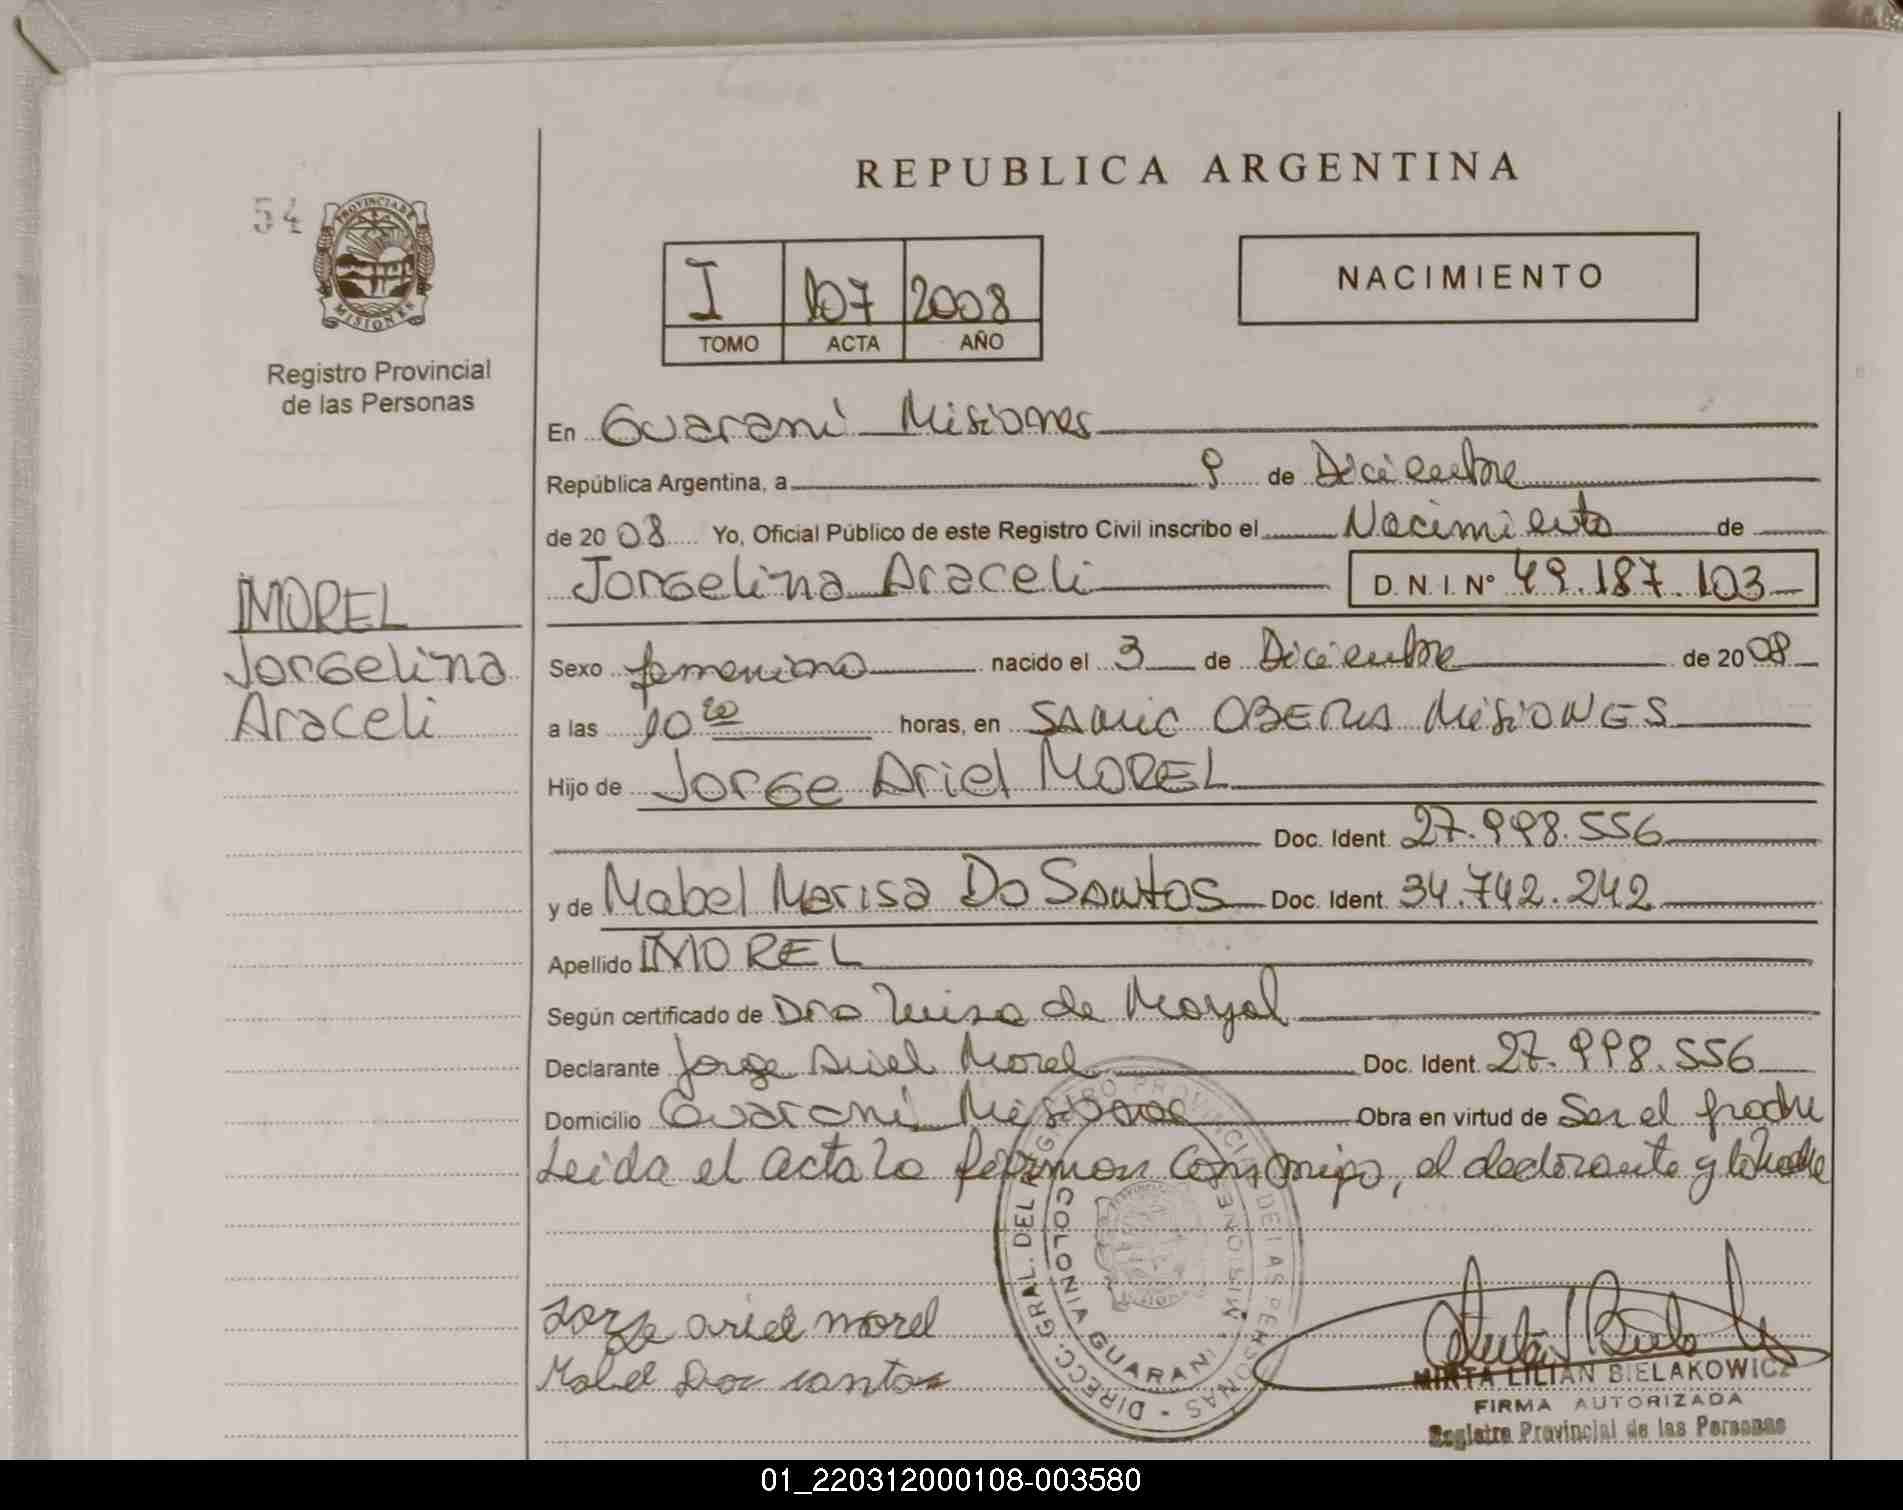 REPUBLICA ARGENTINA
54
PROVINCIA DE
MISIONES
Registro Provincial
de las Personas
I 107 2008
TOMO ACTA AÑO
NACIMIENTO
En Guaraní Misiones
República Argentina, a 9 de Diciembre
de 2008 Yo, Oficial Público de este Registro Civil inscribo el Nacimiento de
Jorgelina Araceli D.N.I. Nº 49.187.103
MOREL
Jorgelina
Araceli
Sexo femenino nacido el 3 de Diciembre de 2008
a las 10 20 horas, en SAMIC OBERA MISIONES
Hijo de Jorge Ariel MOREL
Doc. Ident. 27.998.556
y de Mabel Marisa Do Santos Doc. Ident. 34.742.242
Apellido MOREL
Según certificado de Dra Luisa de Mayol
Declarante Jorge Ariel Morel Doc. Ident. 27.998.556
Domicilio Guaraní Misiones Obra en virtud de Ser el padre
Leida el acta la firman conmigo, el declarante y la Madre
DIRECC. GRAL. DEL REGISTRO PROVINCIAL DE LAS PERSONAS
COLONIA GUARANI - MISIONES
Jorge ariel morel
Mabel Dos santos
MIRTA LILIAN BIELAKOWICZ
FIRMA AUTORIZADA
Registro Provincial de las Personas
01_220312000108-003580